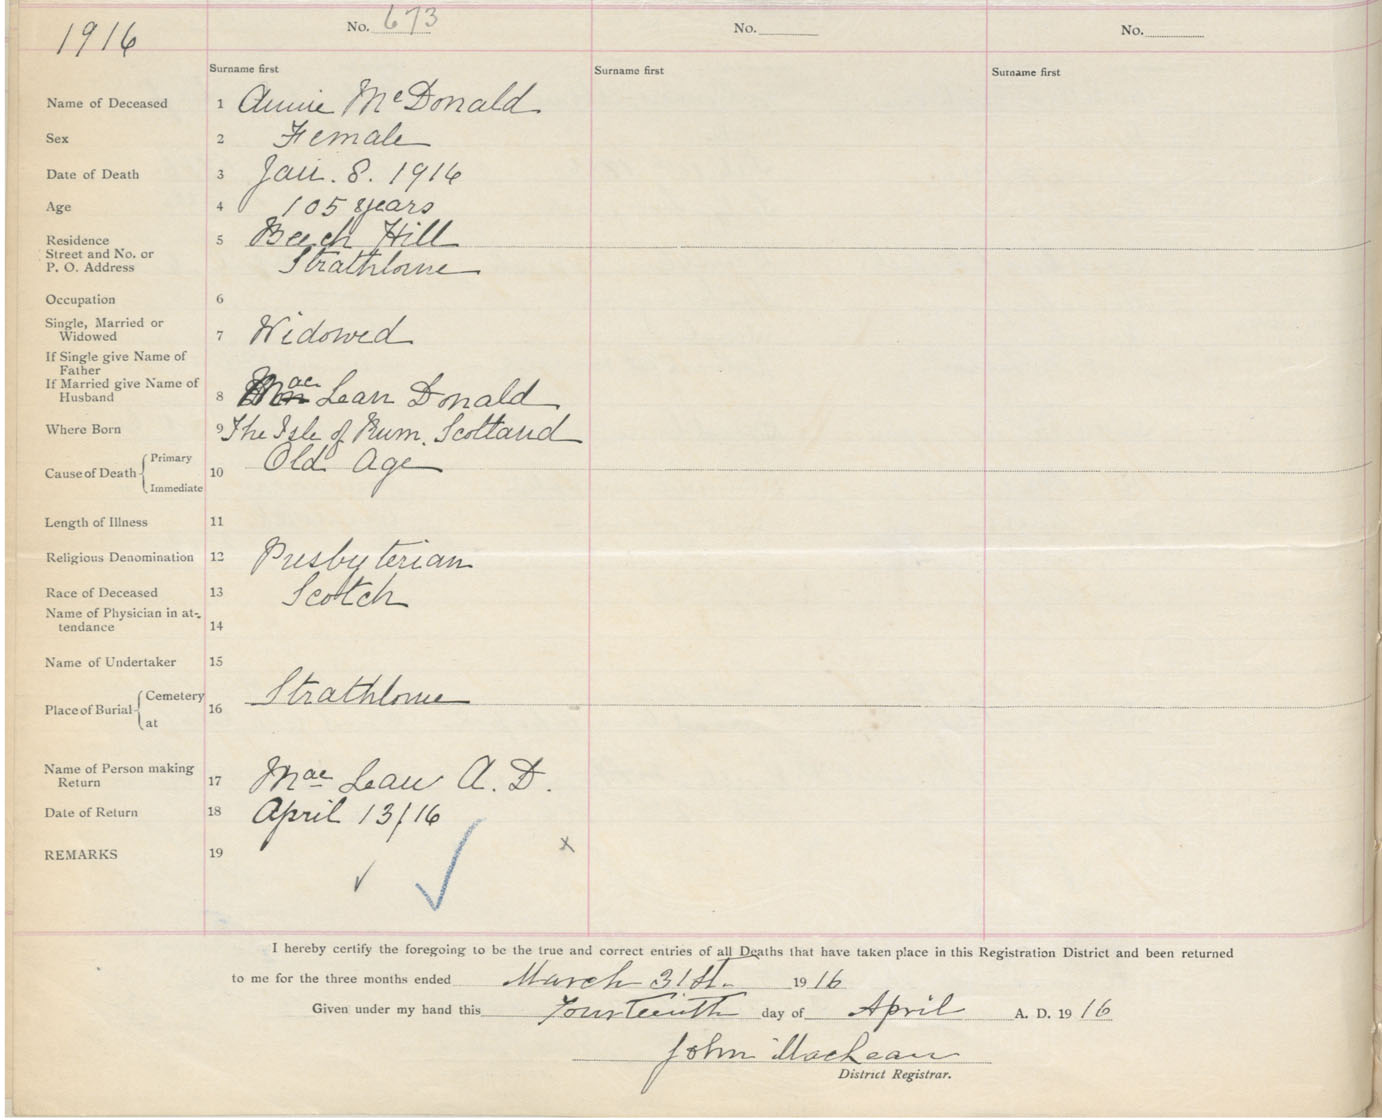 1916
No. 673
No.
No.
Surname first
Surname first
Surname first
Name of Deceased 1 Annie McDonald
Sex 2 Female
Date of Death 3 Jan. 8. 1916
Age 4 105 years
Residence 5 Beech Hill
Street and No. or
P. O. Address Strathlorne
Occupation 6
Single, Married or
Widowed 7 Widowed
If Single give Name of
Father
If Married give Name of
Husband 8 Mac Lean Donald
Where Born 9 The Isle of Rum. Scotland
Cause of Death Primary 10 Old Age
Immediate
Length of Illness 11
Religious Denomination 12 Presbyterian
Race of Deceased 13 Scotch
Name of Physician in at-
tendance 14
Name of Undertaker 15
Place of Burial Cemetery 16 Strathlorne
at
Name of Person making
Return 17 Mac Lean A. D.
Date of Return 18 April 13/16
REMARKS 19
I hereby certify the foregoing to be the true and correct entries of all Deaths that have taken place in this Registration District and been returned
to me for the three months ended March 31st. 1916
Given under my hand this Fourteenth day of April A. D. 1916
John MacLean
District Registrar.